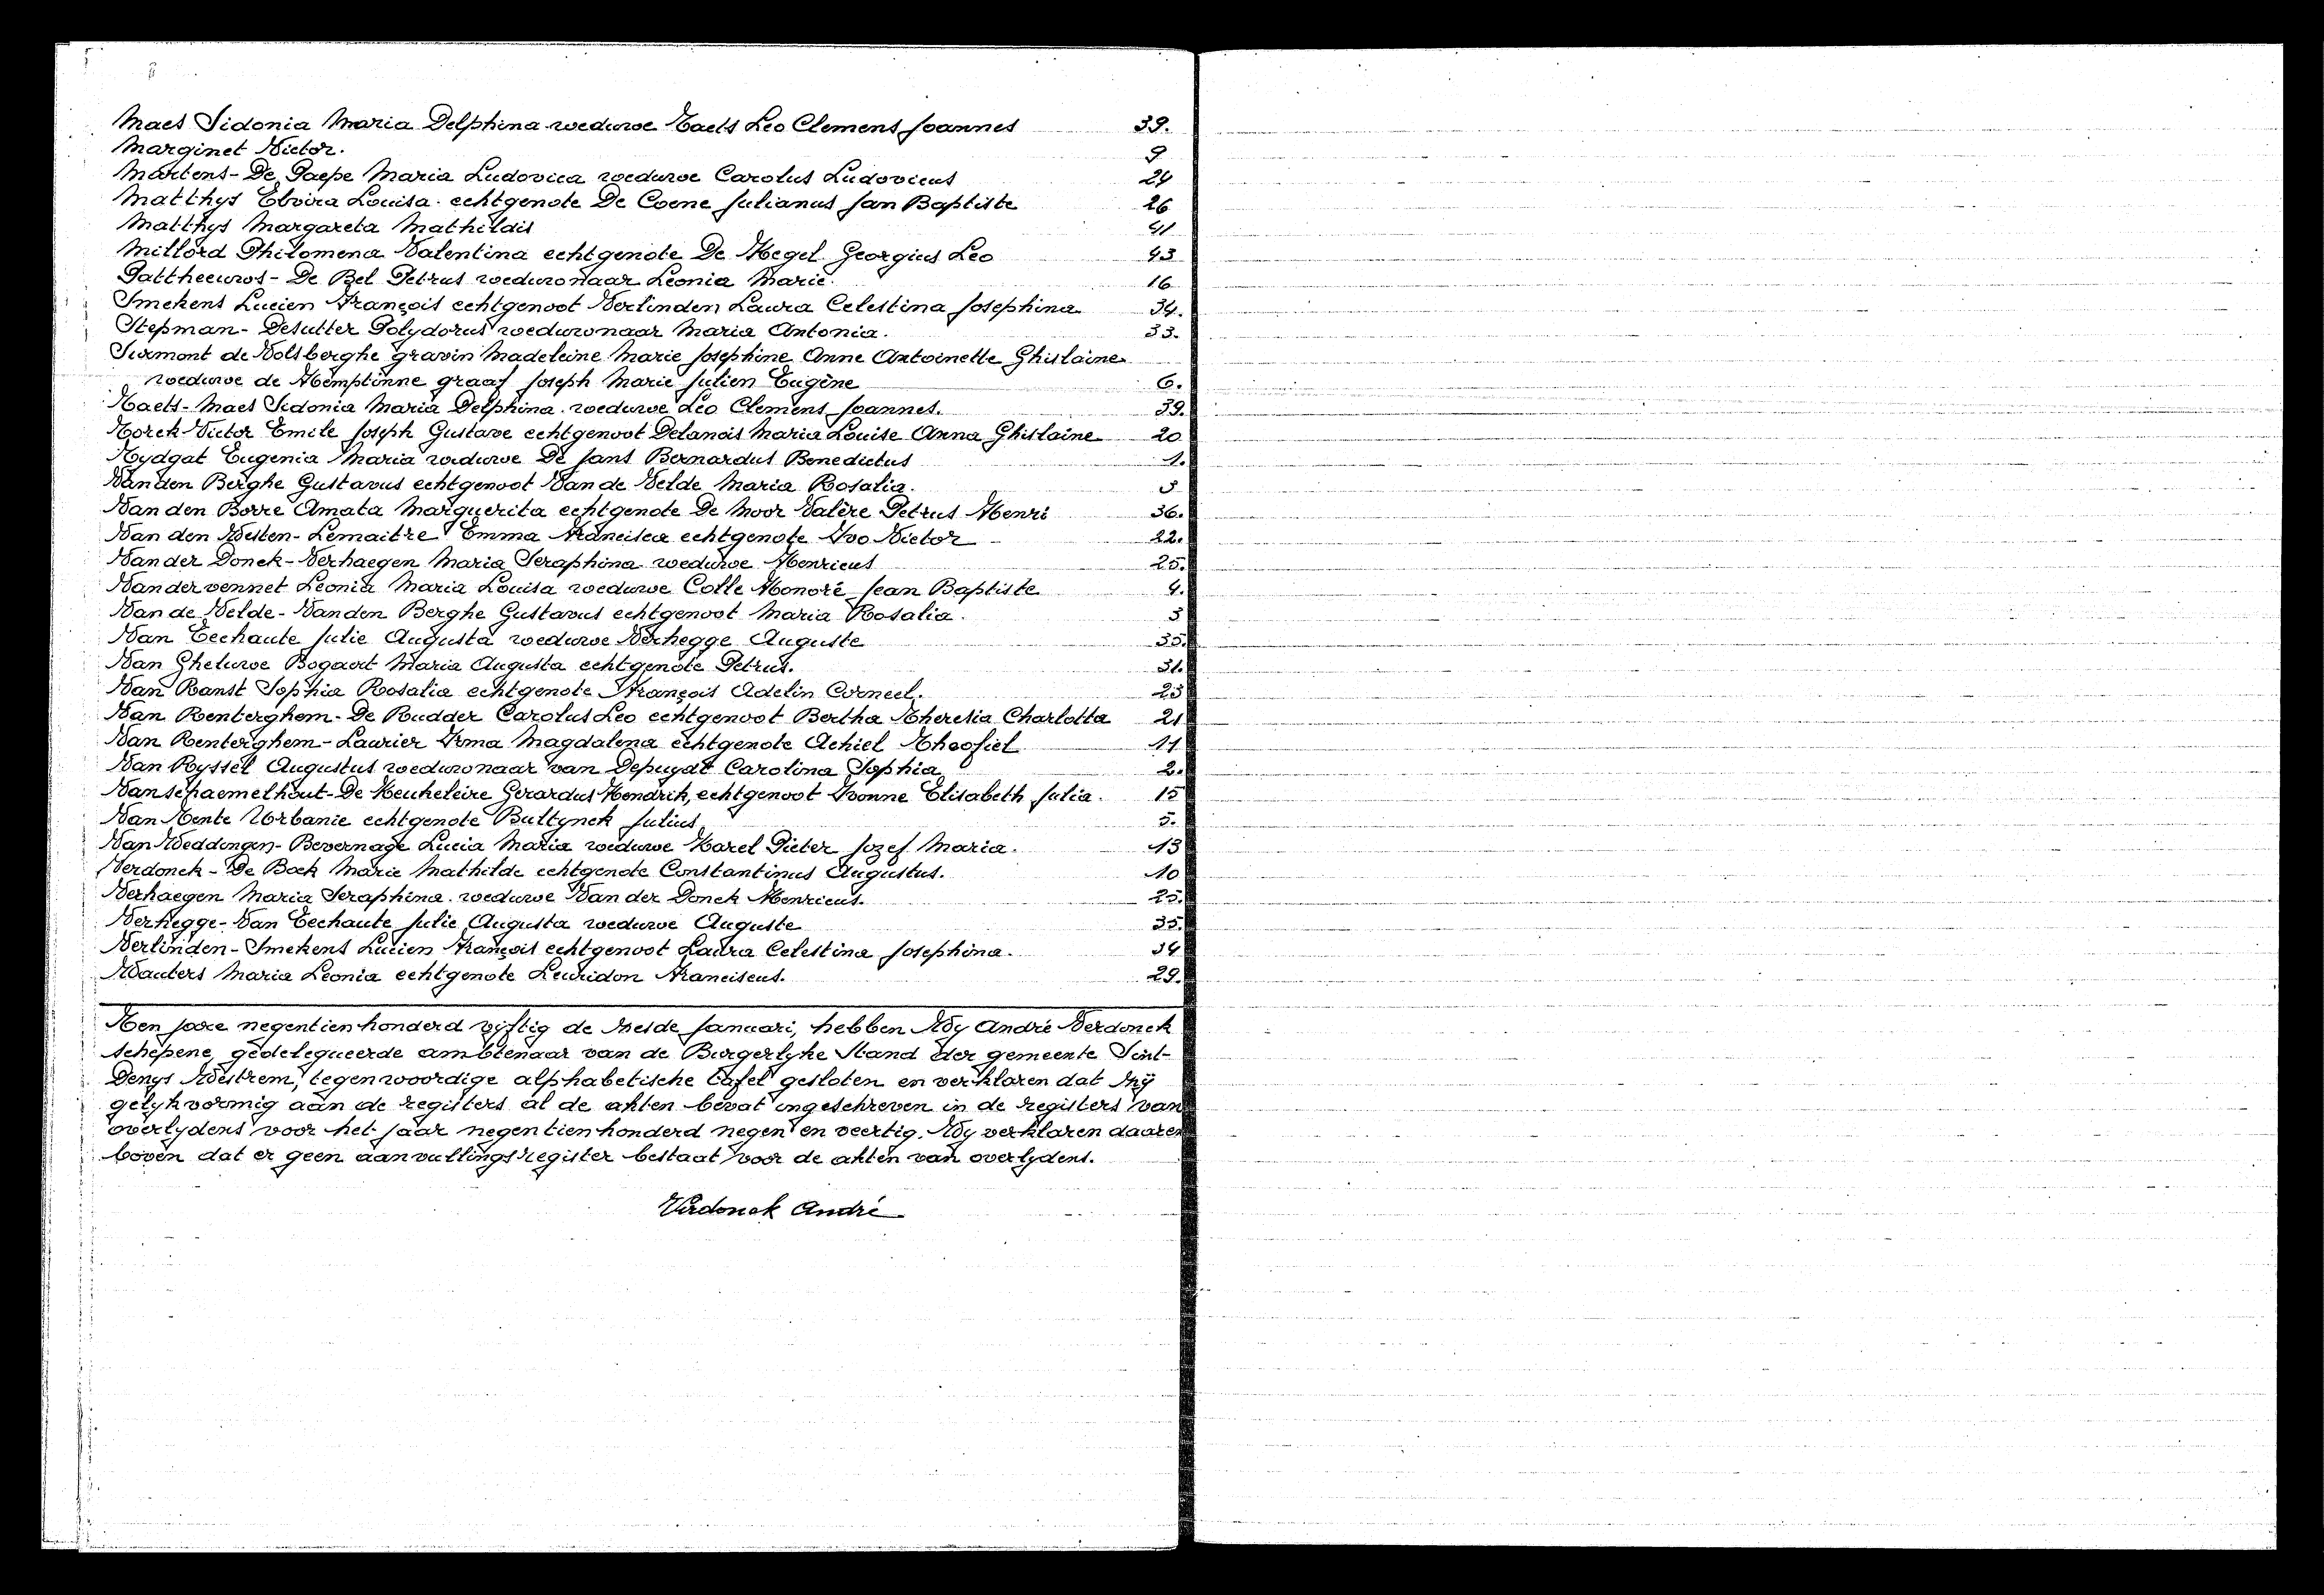 Maes Sidonia Maria Delphina weduwe Taets Leo Clemens Joannes 39.
Marginet Victor. 9
Martens-De Paepe Maria Ludovica weduwe Carolus Ludovicus 24
Matthys Elvira Louisa. echtgenote De Coene Julianus Jan Baptiste 26
Matthys Margareta Mathildis 41
Millord Philomena Valentina echtgenote De Hegel Georgius Leo 43
Pattheeuws-De Bel Petrus weduwnaar Leonia Marie. 16
Smekens Lucien François echtgenoot Verlinden Laura Celestina Josephina 34.
Stepman-Desutter Polydorus weduwnaar Maria Antonia. 33.
Surmont de Volsberghe gravin Madeleine Marie Josephine Anne Antoinette Ghislaine
weduwe de Hemptinne graaf Joseph Marie Julien Eugène 6.
Taets-Maes Sidonia Maria Delphina. weduwe Leo Clemens Joannes. 39.
Torck Victor Emile Joseph Gustave echtgenoot Delanois Maria Louise Anna Ghislaine 20
Tydgat Eugenia Maria weduwe De Jans Bernardus Benedictus 1.
Van den Berghe Gustavus echtgenoot Van de Velde Maria Rosalia. 3
Van den Borre Amata Marguerita echtgenote De Moor Valère Petrus Henri 36.
Van den Westen-Lemaitre Emma Francisca echtgenote Ivo Victor 22.
Van der Donck-Verhaegen Maria Seraphina weduwe Henricus 25.
Vandervennet Leonia Maria Louisa weduwe Colle Honoré Jean Baptiste 4.
Van de Velde-Van den Berghe Gustavus echtgenoot Maria Rosalia. 3
Van Eechaute Julie Augusta weduwe Verhegge Auguste 35.
Van Gheluwe Bogaert Maria Augusta echtgenote Petrus. 31.
Van Ranst Sophia Rosalia echtgenote François Adelin Corneel. 23
Van Renterghem-De Rudder Carolus Leo echtgenoot Bertha Theresia Charlotta 21
Van Renterghem-Laurier Irma Magdalena echtgenote Achiel Theofiel 11
Van Ryssel Augustus weduwnaar van Depuydt Carolina Sophia 2.
Vanschaemelhout-De Keukeleire Gerardus Hendrik, echtgenoot Ivonne Elisabeth Julia. 15
Van Tente Urbanie echtgenote Bultynck Julius 5.
Van Weddingen-Bevernage Lucia Maria weduwe Karel Pieter Jozef Maria. 13
Verdonck-De Bock Marie Mathilde echtgenote Constantinus Augustus. 10
Verhaegen Maria Seraphina. weduwe Van der Donck Henricus. 25.
Verhegge-Van Eechaute Julie Augusta weduwe Auguste 35.
Verlinden-Smekens Lucien François echtgenoot Laura Celestina Josephina. 34
Wauters Maria Leonia echtgenote Leuridon Franciscus. 29.
Ten jare negentienhonderd vyftig de derde Januari, hebben Wy André Verdonck
schepene, gedelegueerde ambtenaar van de Burgerlyke Stand der gemeente Sint-
Denys Westrem, tegenwoordige alphabetische tafel gesloten en verklaren dat zij
gelykvormig aan de registers al de akten bevat ingeschreven in de registers van
overlydens voor het jaar negentienhonderd negen en veertig. Wy verklaren daaren
boven dat er geen aanvullingsregister bestaat voor de akten van overlydens.
Verdonck André